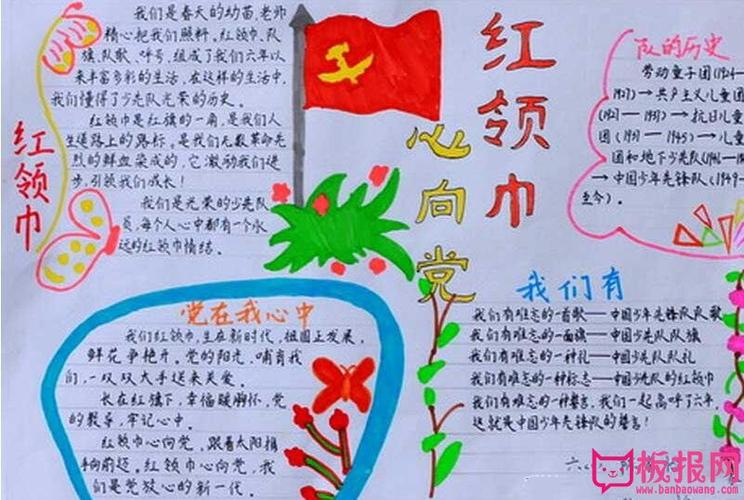 红领巾
我们是春天的幼苗,老师
精心把我们照料。红领巾、队
旗、队歌、呼号,组成了我们六年以
来丰富多彩的生活,在这样的生活中,
我们懂得了少先队光荣的历史。
红领巾是红旗的一角,是我们人
生道路上的路标。是我们无数革命先
烈的鲜血染成的,它激励我们进
步,引领我们成长!
我们是光荣的少先队
员,每个人心中都有一个永
远的红领巾情结。
红领巾
心向党
队的历史
劳动童子团(1924—
1927)→共产主义儿童团
(1927—1931)→抗日儿童
团(1931—1945)→儿童
团和地下少先队(1946—
→中国少年先锋队(1949—
至今)。
党在我心中
我们红领巾,生在新时代,祖国正发展,
鲜花争艳开。党的阳光,哺育我
们,一双双大手送来关爱。
长在红旗下,幸福暖胸怀,党
的教导,牢记心中。
红领巾心向党,跟着太阳指
向前迈。红领巾心向党,我
们是党放心的新一代。
我们有
我们有难忘的一首歌——中国少年先锋队队歌
我们有难忘的一面旗——中国少先队队旗
我们有难忘的一种礼——中国少先队队礼
我们有难忘的一种标志——中国少先队的红领巾
我们有难忘的一种誓言,我们一起高呼了六年,
这就是中国少年先锋队的誓言!
板报网
www.banbaowang.com